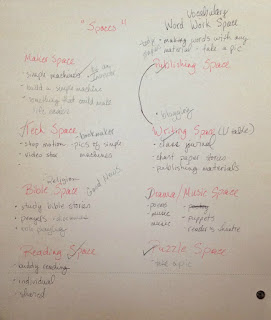 "Spaces"
Vocabulary
Word Work Space
• making words with any
material - take a pic
Maker Space
• simple machines
• build a simple machine
• something that could make
life easier
Publishing Space
• blogging
Tech Space
• bookmaker
• stop motion - pics of simple
• video star machines
Writing Space (U table)
• class journal
• chart paper stories
• publishing materials
Bible Space
religion
Good News
• study bible stories
• prayers
Drama/Music Space
music
music
• puppets
• reader's theatre
Reading Space
• buddy reading
• individual
• shared
Puzzle Space
• take a pic